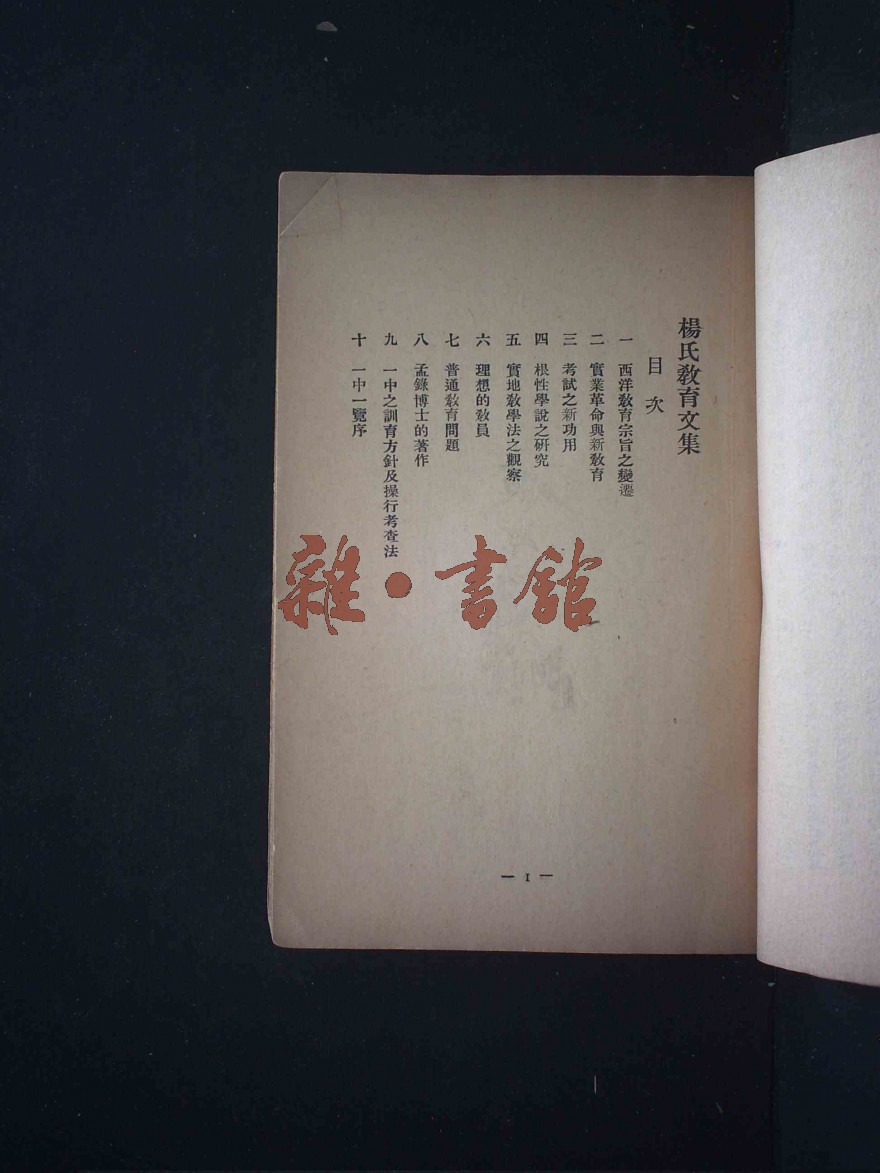 楊氏敎育文集
目次
一 西洋敎育宗旨之變遷
二 實業革命與新敎育
三 考試之新功用
四 根性學說之研究
五 實地敎學法之觀察
六 理想的敎員
七 普通敎育問題
八 孟錄博士的著作
九 一中之訓育方針及操行考查法
十 一中一覽序
雜·書館
— 1 —